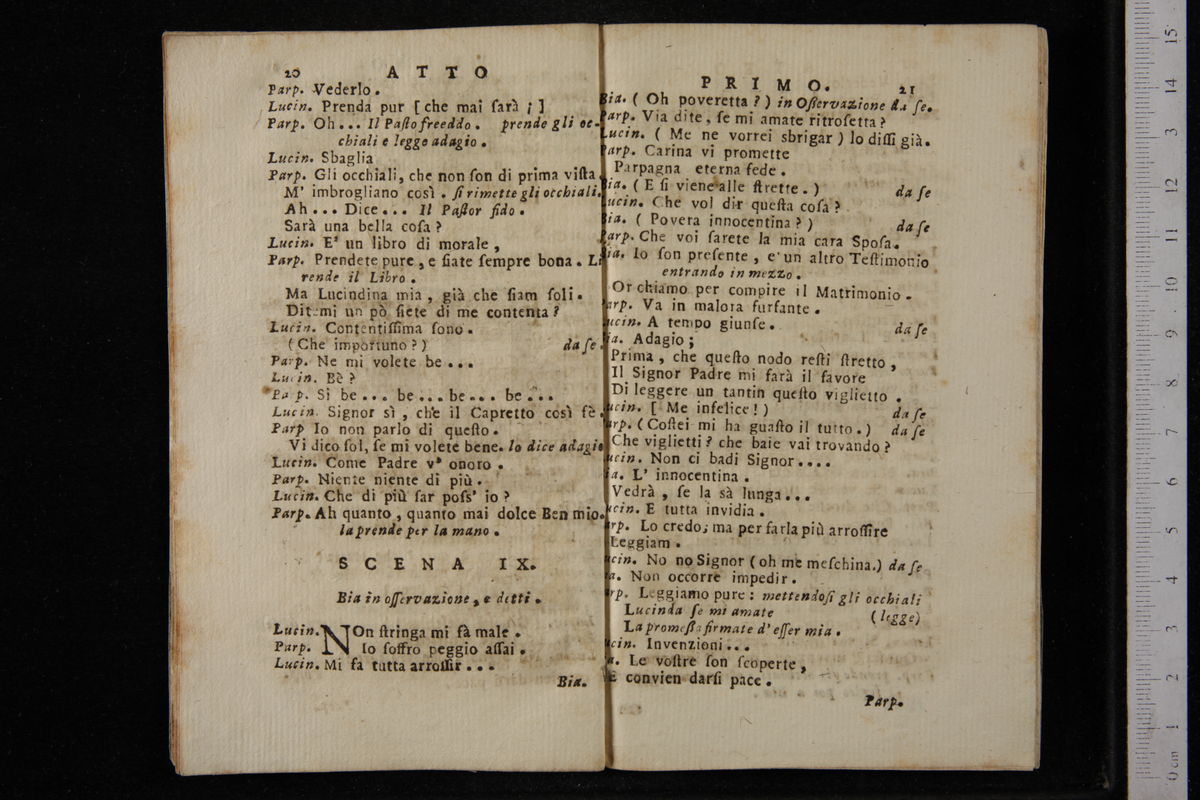 20 ATTO
Parp. Vederlo.
Lucin. Prenda pur [che mai ſarà ¡ ]
Parp. Oh... Il Paſto freeddo. prende gli oc-
chiali e legge adagio.
Lucin. Sbaglia
Parp. Gli occhiali, che non ſon di prima viſta
M' imbrogliano così. ſi rimette gli occhiali.
Ah... Dice... Il Paſtor fido.
Sarà una bella coſa?
Lucin. E' un libro di morale,
Parp. Prendete pure, e ſiate ſempre bona. Li
rende il Libro.
Ma Lucindina mia, già che ſiam ſoli.
Ditemi un pò ſiete di me contenta?
Lucin. Contentiſſima ſono.
(Che importuno?) da ſe.
Parp. Ne mi volete be...
Lucin. Bè?
Parp. Sì be... be... be... be...
Lucin. Signor sì, che il Capretto così fè.
Parp Io non parlo di queſto.
Vi dico ſol, ſe mi volete bene. lo dice adagio
Lucin. Come Padre v' onoro.
Parp. Niente niente di più.
Lucin. Che di più far poſs' io?
Parp. Ah quanto, quanto mai dolce Ben mio.
la prende per la mano.
SCENA IX.
Bia in oſſervazione, e detti.
Lucin. NOn ſtringa mi fà male.
Parp. Io ſoffro peggio aſſai.
Lucin. Mi fa tutta arroſſir...
Bia.
PRIMO. 21
Bia. (Oh poveretta?) in Oſſervazione da ſe.
Parp. Via dite, ſe mi amate ritroſetta?
Lucin. (Me ne vorrei sbrigar) lo diſſi già.
Parp. Carina vi promette
Parpagna eterna fede.
Bia. (E ſi viene alle ſtrette.) da ſe
Lucin. Che vol dir queſta coſa?
Bia. (Povera innocentina?) da ſe
Parp. Che voi ſarete la mia cara Spoſa.
Bia. Io ſon preſente, e un altro Teſtimonio
entrando in mezzo.
Or chiamo per compire il Matrimonio.
Parp. Va in malora furfante.
Lucin. A tempo giunſe. da ſe
Bia. Adagio;
Prima, che queſto nodo reſti ſtretto,
Il Signor Padre mi farà il favore
Di leggere un tantin queſto viglietto.
Lucin. [Me infelice!) da ſe
Parp. (Coſtei mi ha guaſto il tutto.) da ſe
Che viglietti? che baie vai trovando?
Lucin. Non ci badi Signor....
Bia. L' innocentina.
Vedrà, ſe la sà lunga...
Lucin. E tutta invidia.
Parp. Lo credo; ma per farla più arroſſire
Leggiam.
Lucin. No no Signor (oh me meſchina.) da ſe
Bia. Non occorre impedir.
Parp. Leggiamo pure: mettendoſi gli occhiali
Lucinda ſe mi amate (legge)
La promeſſa firmate d' eſſer mia.
Lucin. Invenzioni...
Bia. Le voſtre ſon ſcoperte,
E convien darſi pace.
Parp.